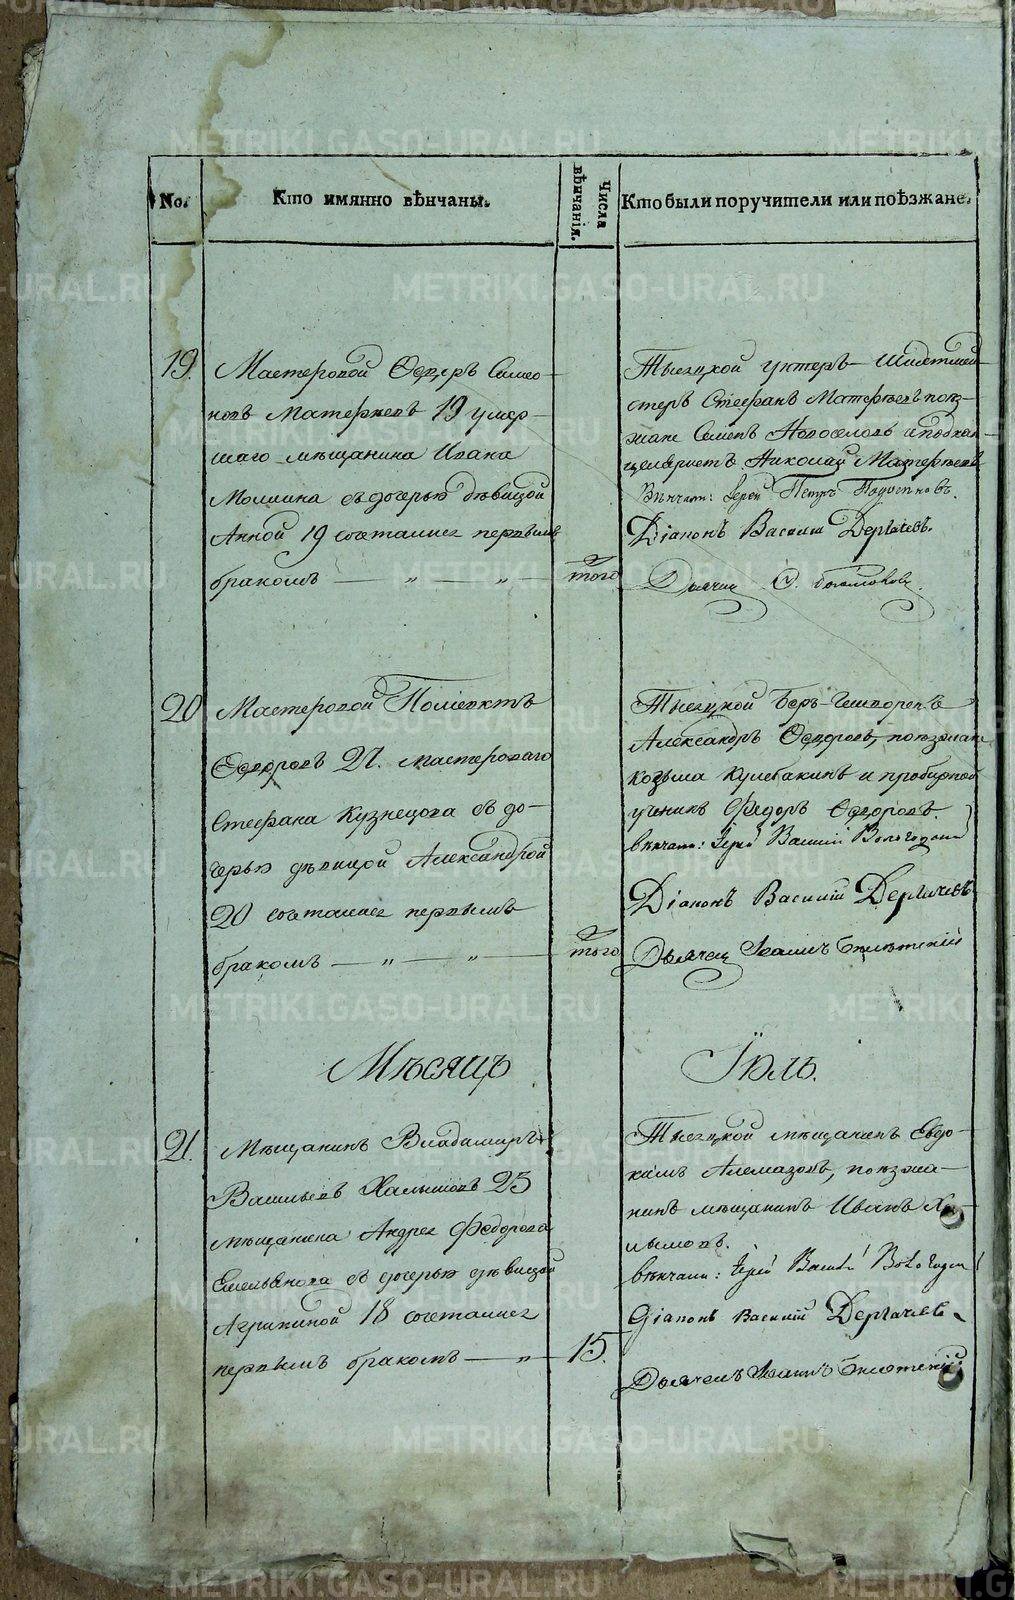 No.
Кто имянно вѣнчаны.
Числа вѣнчанія.
Кто были поручители или поѣзжане.
19.
Мастеровой Ѳедоръ Симео-
новъ Матвѣевъ 19 умер-
шаго мѣщанина Ивана
съ дочерью дѣвицой
Анной 19 сочетались первымъ
бракомъ — „ — „ —
того
Тысяцкой унтеръ-шихтмей
стеръ Стефанъ поѣз-
жане Семенъ Новоселовъ и подкан-
целяристъ Николай
Вѣнчали: Іерей Петръ
Діаконъ Василій Дергачевъ.
Дьячекъ
20
Мастеровой
Ѳедоровъ 27. мастероваго
Стефана Кузнецова съ до-
черью дѣвицой Александрой
20 сочетались первымъ
бракомъ — „ — „ —
того
Тысяцкой
Александръ Ѳедоровъ, поѣзжане
Козьма Кулебакинъ и пробирной
ученикъ Ѳедоръ Ѳедоровъ.
вѣнчали: Іерей Василій Вологодской
Діаконъ Василій Дергачевъ
Дьячекъ Іоаннъ
Мѣсяцъ Іюль.
21.
Мѣщанинъ Владимиръ
Васильевъ Халымовъ 25
мѣщанина Андрея Федорова
Емельянова съ дочерью дѣвицой
Агрипиной 18 сочетались
первымъ бракомъ — „ —
15.
Тысяцкой мѣщанинъ Евдо-
кимъ Алемазовъ, поѣзжа-
нинъ мѣщанинъ Иванъ Ха-
лымовъ.
вѣнчали: Іерей Василій Вологодской
Діаконъ Василій Дергачевъ
Дьячекъ Іоаннъ
METRIKI.GASO-URAL.RU